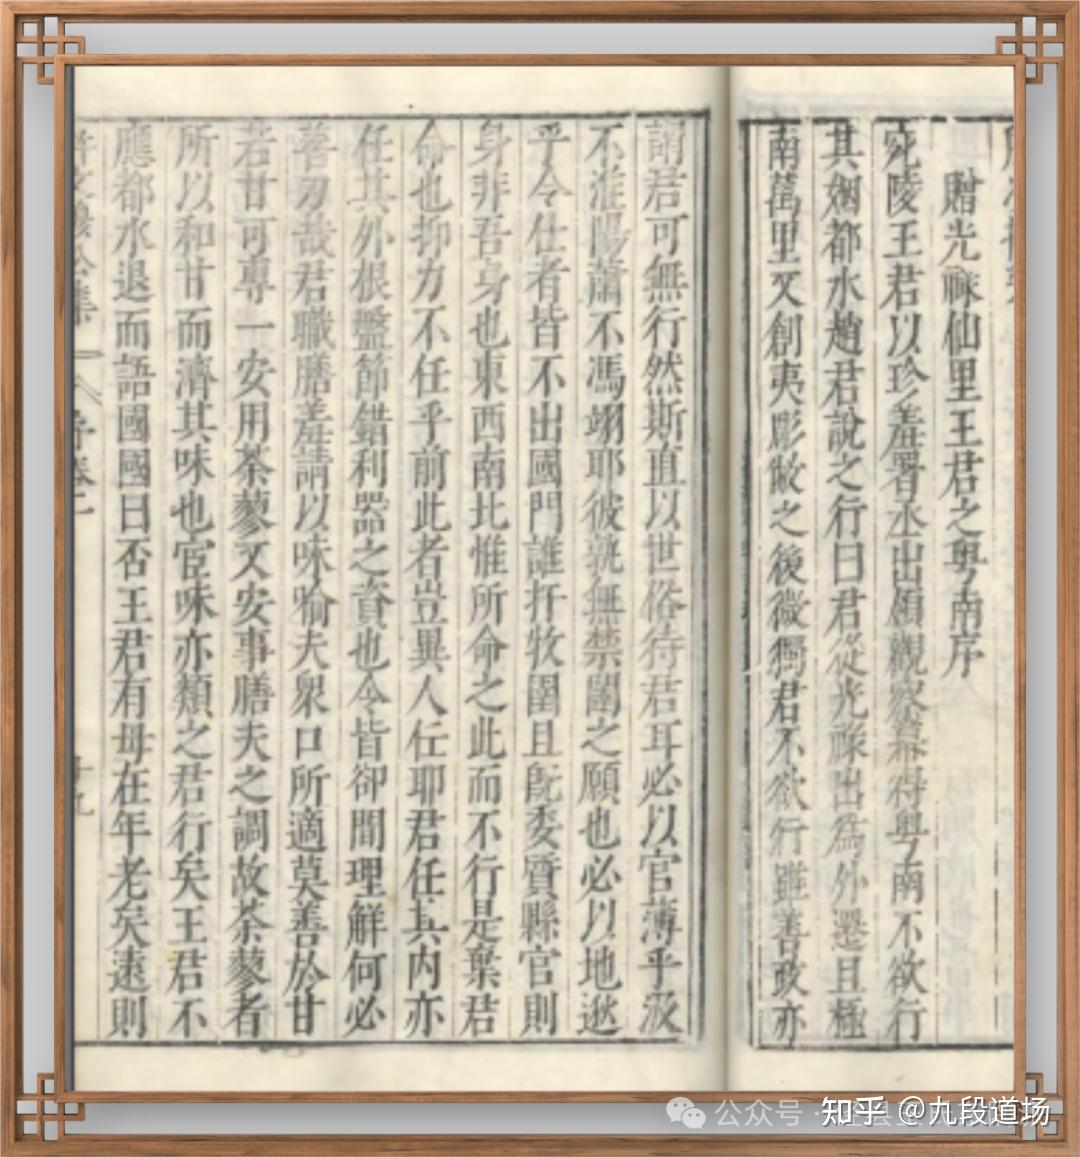 贈光祿仙里王君之粤南序
宛陵王君以珍羞署丞出領觀察幕得粤南不欲行
其婣都水趙君説之行曰君從光祿出為外遷且極
南萬里又創夷彫敝之後微獨君不欲行雖善政亦
謂君可無行然斯直以世俗待君耳必以官薄乎汲
不淮陽蕭不馮翊耶彼孰無禁闥之願也必以地逖
乎今仕者皆不出國門誰扞牧圉且既委質縣官則
身非吾身也東西南北惟所命之此而不行是棄君
命也抑力不任乎前此者豈異人任耶君任其内亦
任其外根盤節錯利器之資也今皆卻間理解何必
善刀哉君職膳羞請以味喻夫衆口所適莫善於甘
若甘可專一安用茶蓼又安事膳夫之調故茶蓼者
所以和甘而濟其味也宦味亦類之君行矣王君不
應都水退而語國國曰否王君有母在年老矣遠則
卷二
十九
公众号
知乎 @九段道场